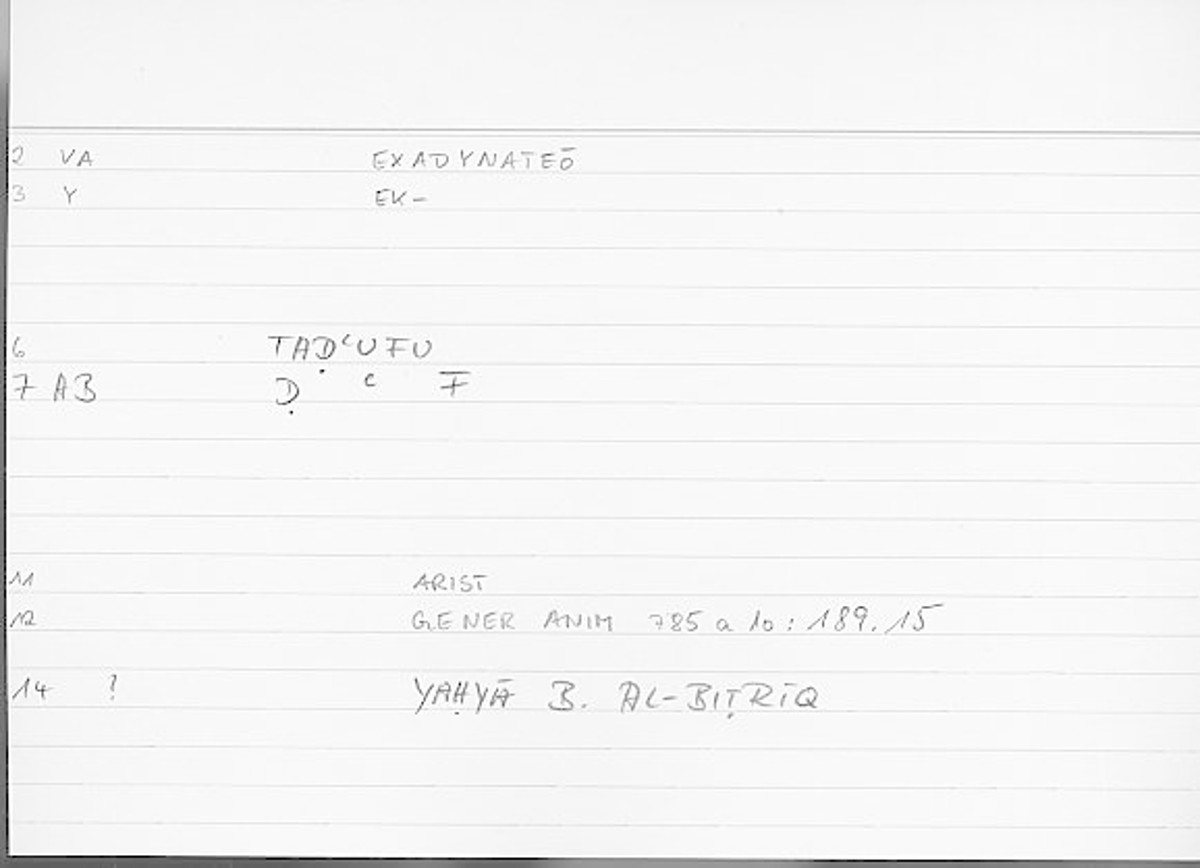 2 VA EXADYNATEŌ
3 Y EK-
6 TAḌʿUFU
7 AB Ḍ ʿ F
11 ARIST
12 GENER ANIM 785 a 10 : 189.15
14 ? YAḤYĀ B. AL-BIṬRĪQ